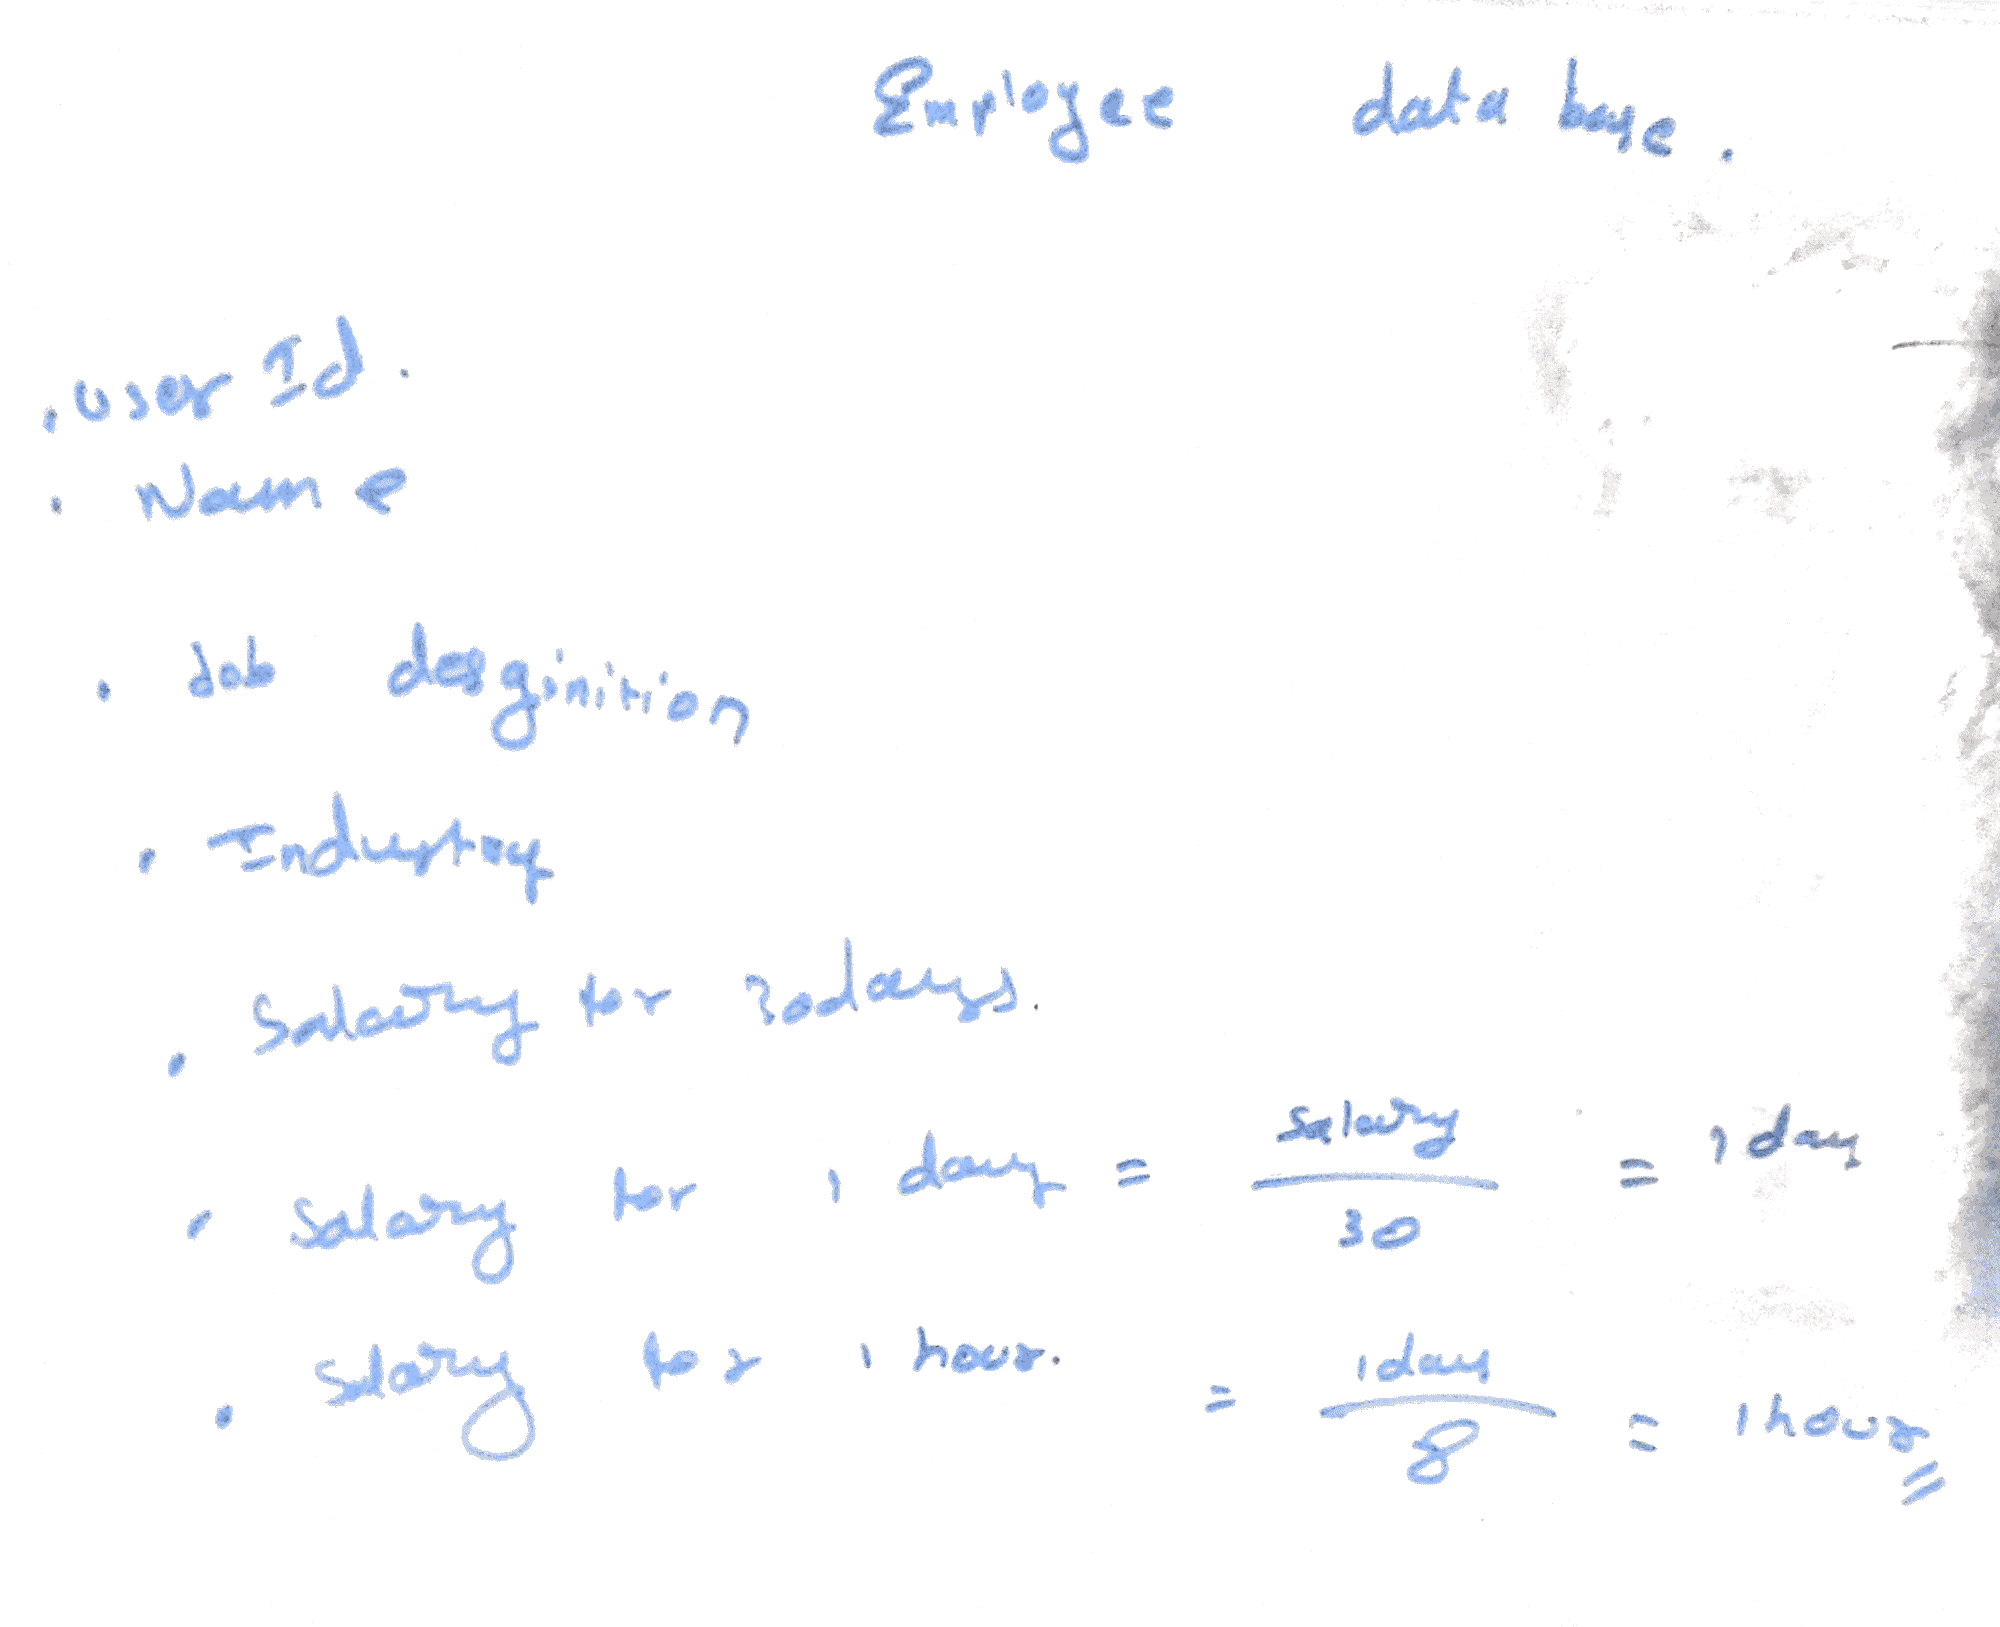 Employee data base.
. User Id.
. Name
. Job desginition
. Industry
. Salary for 30days.
. Salary for 1 day = salary / 30 = 1 day
. Salary for 1 hour. = 1day / 8 = 1 hour